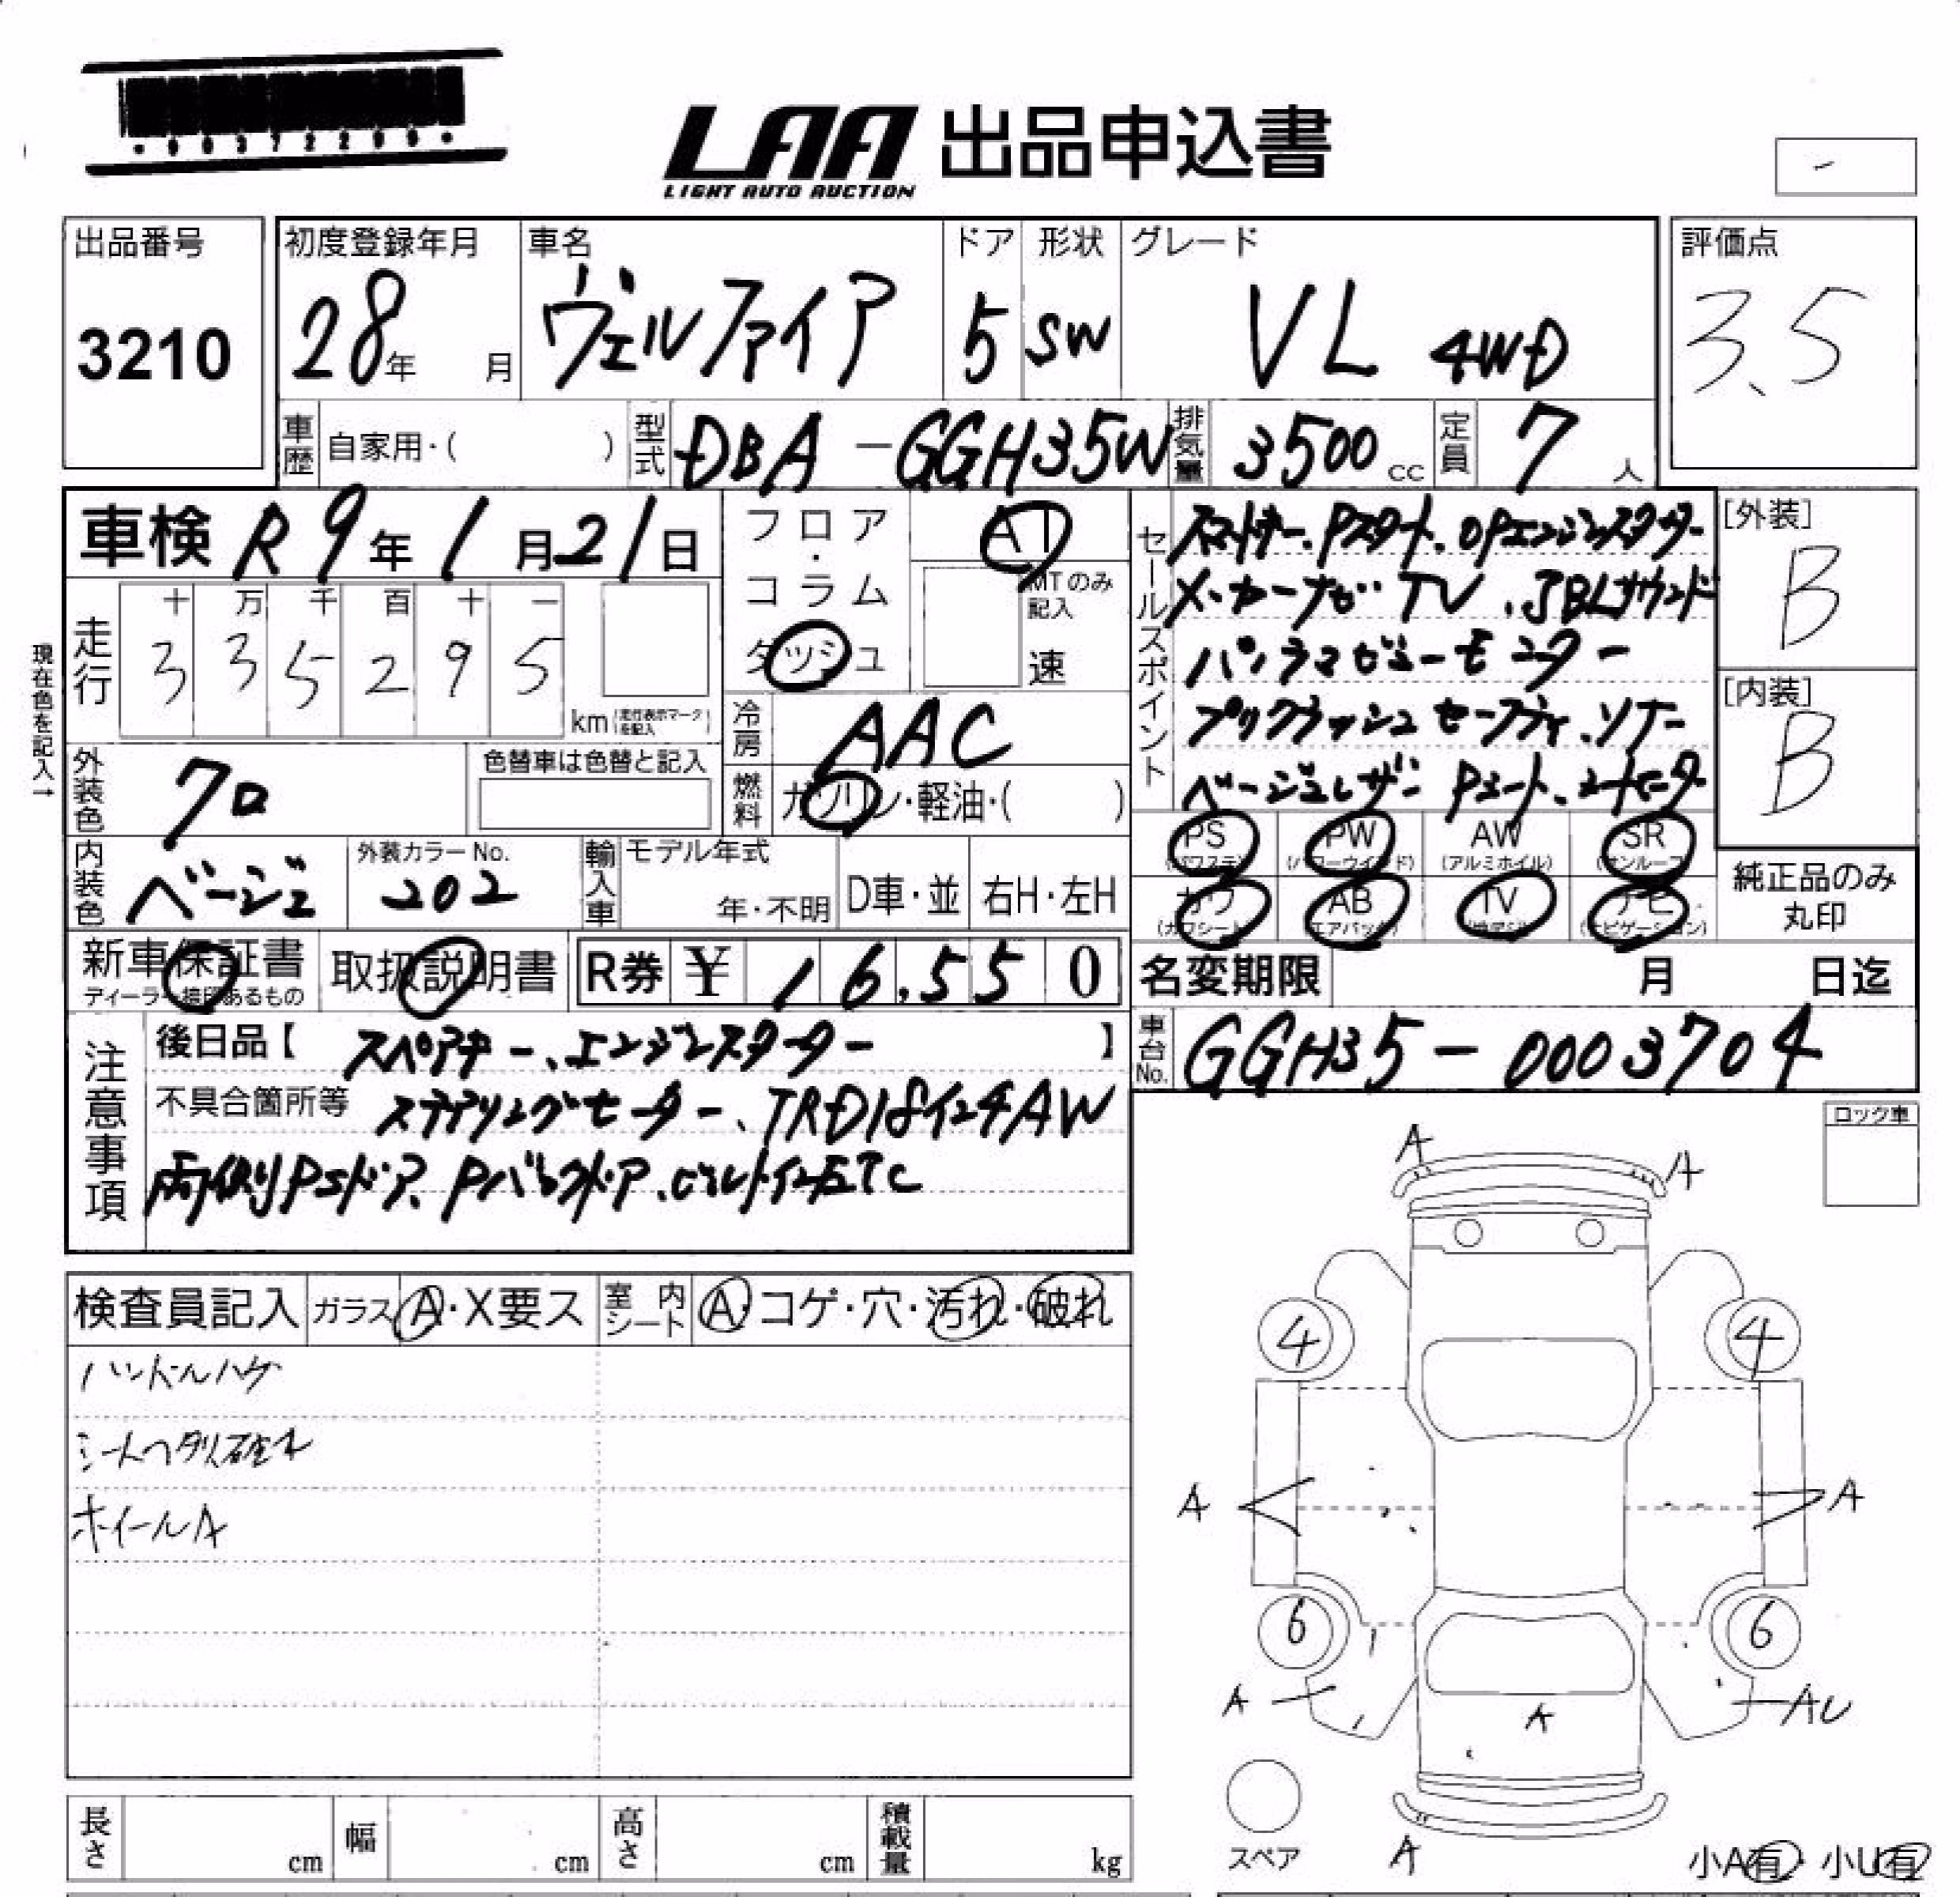 ・00372209・
LAA 出品申込書
LIGHT AUTO AUCTION
-
出品番号
3210
初度登録年月
28年 月
車名
ヴェルファイア
ドア
5
形状
SW
グレード
VL 4WD
評価点
3.5
車歴 自家用・( )
型式 DBA-GGH35W
排気量 3500cc
定員 7人
車検 R9年1月21日
走行
十 万 千 百 十 一
3 3 5 2 9 5
km (走行表示マークを記入)
現在色を記入→
フロア・コラム
ダッシュ
AT
MTのみ記入
速
冷房 AAC
燃料 ガソリン・軽油・( )
外装色 クロ
色替車は色替と記入
内装色 ベージュ
外装カラーNo.
202
輸入車 モデル年式
年・不明
D車・並
右H・左H
セールスポイント
スマートキー、Pスタート、OPエンジンスターター
メーカーナビ TV、JBLサウンド
パノラマビューモニター
プリクラッシュセーフティ、ソナー
ベージュレザー Pシート、シートヒーター
[外装]
B
[内装]
B
PS (パワステ)
PW (パワーウインド)
AW (アルミホイル)
SR (サンルーフ)
カワ (カワシート)
AB (エアバック)
TV (地デジ)
ナビ (ナビゲーション)
純正品のみ
丸印
新車保証書
ディーラー捺印あるもの
取扱説明書
R券 ¥ 16,550
名変期限 月 日迄
車台No. GGH35-0003704
注意事項
後日品【 スペアキー、エンジンスターター 】
不具合箇所等 ステアリングヒーター、TRD18インチAW
両側PSドア、Pバックドア、ビルトインETC
ロック車
検査員記入
ガラス A・X要ス
室内シート A・コゲ・穴・汚れ・破れ
ハンドルハゲ
シートヘタリ破れ
ホイールA
A
A
4 4
A A
6 6
A AU
A
スペア
A
小A有・小U有
長さ cm
幅 cm
高さ cm
積載量 kg